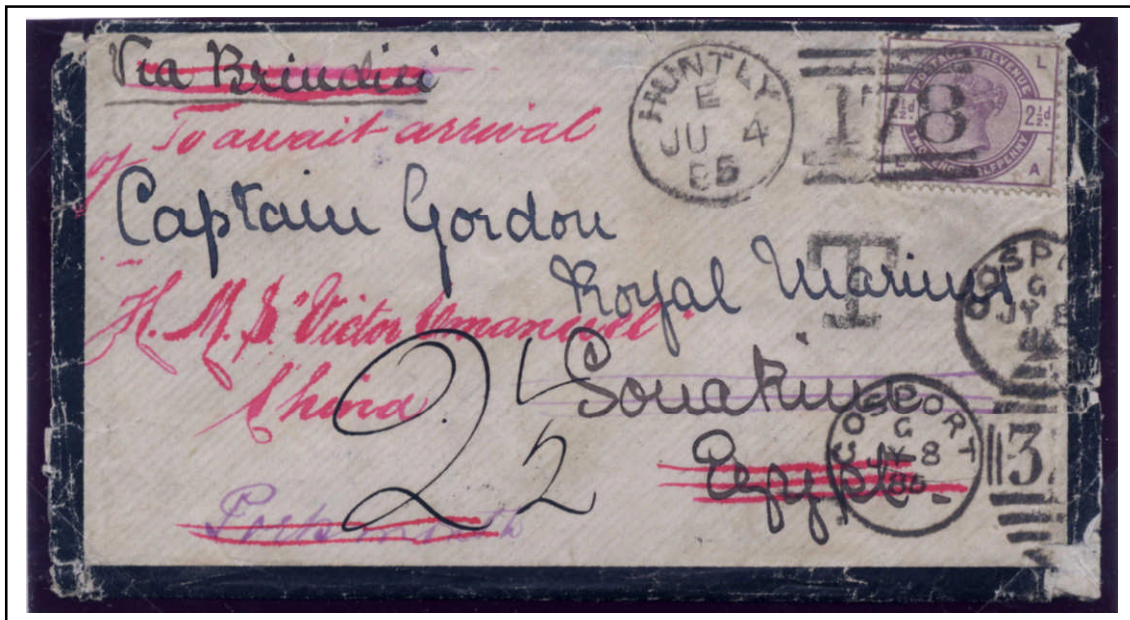 Via Brindisi
To await arrival
of
Captain Gordon
Royal Marines
H. M. S. "Victor Emanuel"
China
Souakim
Egypt
Portsmouth
2½
HUNTLY
E
JU 4
85
178
POSTAGE & REVENUE
2½d.
L
A
T
GOSP
G
JY 8
3
GOSPORT
G
JY 8
85